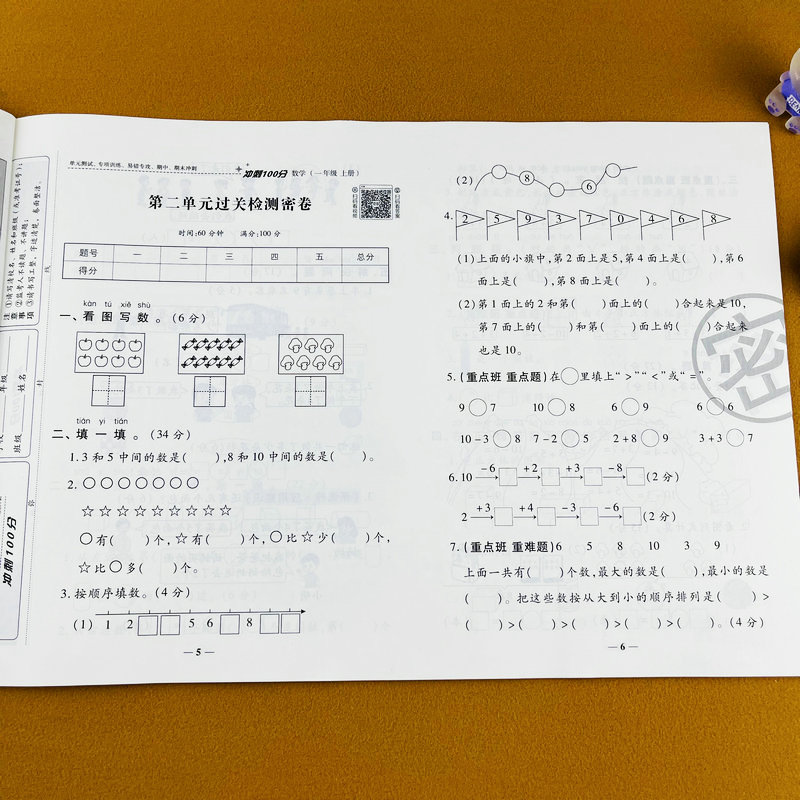 单元测试、专项训练、易错专攻、期中、期末冲刺
冲刺100分 数学(一年级 上册)
第二单元过关检测密卷
时间:60分钟 满分:100分
题号 一 二 三 四 五 总分
得分
kàn tú xiě shù
一、看图写数。(6分)
tián yi tián
二、填一填。(34分)
1.3和5中间的数是( ),8和10中间的数是( )。
2.○○○○○○○
☆☆☆☆☆☆☆☆☆
○有( )个,☆有( )个,○比☆少( )个,
☆比○多( )个。
3.按顺序填数。(4分)
(1) 1 2 □ □ 5 6 □ 8 □ □
— 5 —
(2) ○ 8 ○ 6 ○
4. 2 5 9 3 7 0 4 6 8
(1)上面的小旗中,第2面上是5,第4面上是( ),第6
面上是( ),第8面上是( )。
(2)第1面上的2和第( )面上的( )合起来是10,
第7面上的( )和第( )面上的( )合起来
也是10。
5.(重点班 重点题)在○里填上“>”“<”或“=”。
9○7 10○8 6○9 6○6
10-3○8 7-2○5 2+8○9 3+3○7
6.10 -6→□ +2→□ +3→□ -8→□(2分)
2 +3→□ +4→□ -3→□ -6→□(2分)
7.(重点班 重难题)6 5 8 10 3 9
上面一共有( )个数,最大的数是( ),最小的数是
( )。把这些数按从大到小的顺序排列是( )>
( )>( )>( )>( )>( )。(4分)
— 6 —
密
注意事项
①请写清校名、姓名和班级(或准考证号);
②监考人不读题、不讲题;
③请书写工整、字迹清楚,卷面整洁。
姓名
班级
年级
线
封
弥
冲刺100分